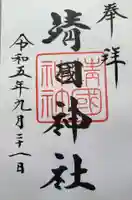 奉拝
靖國神社
靖國神社
令和五年九月二十一日